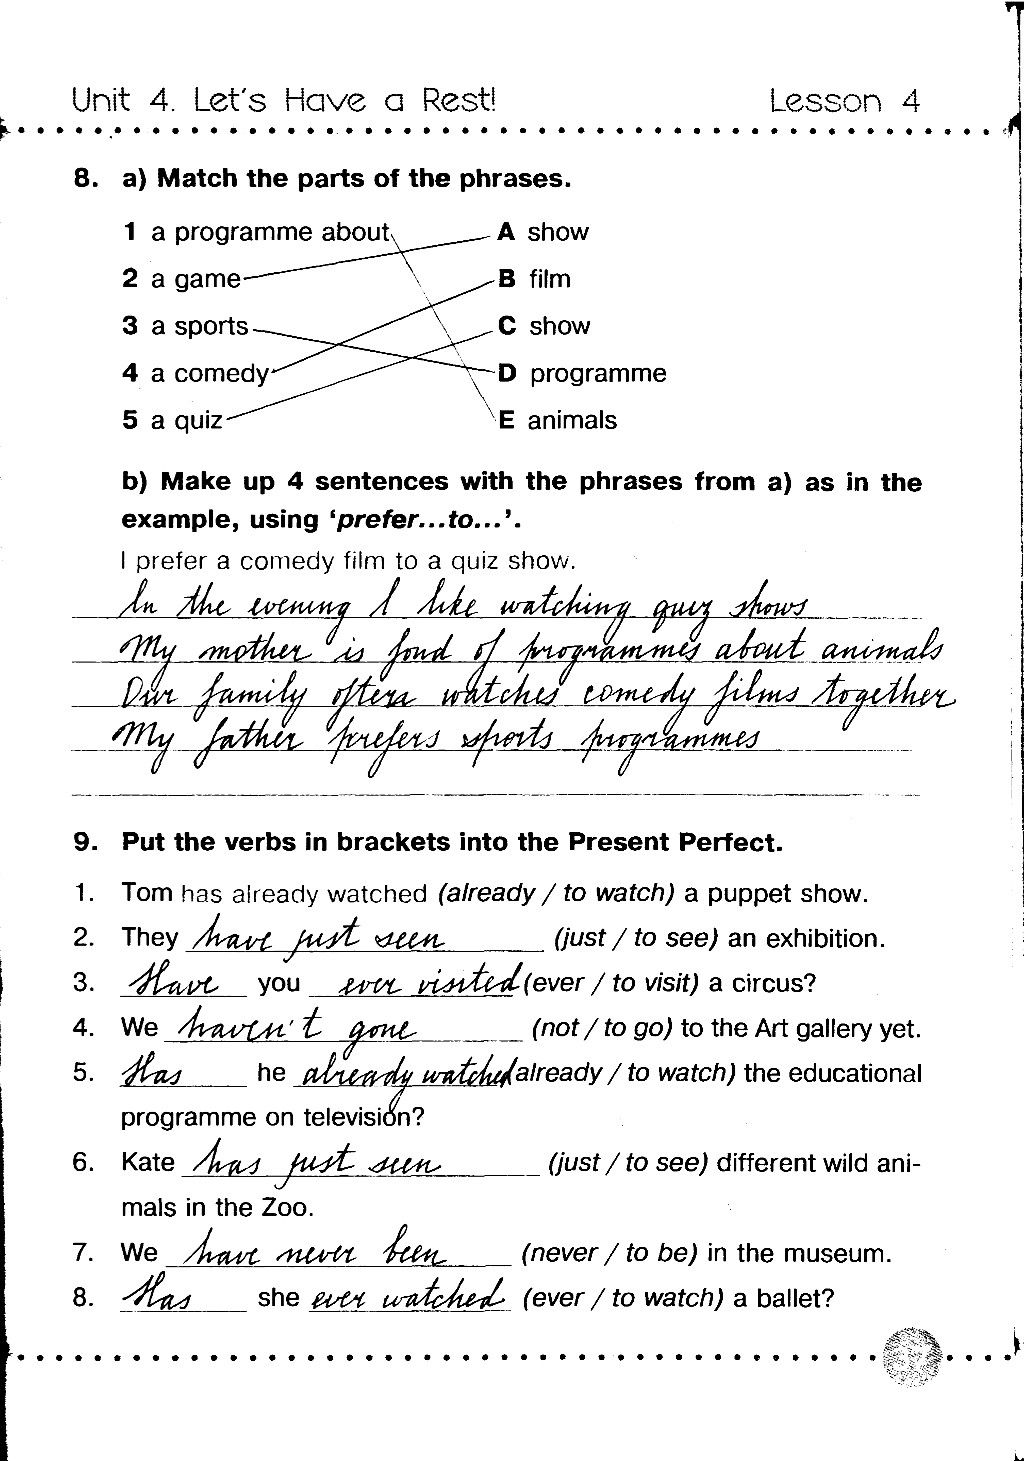 Unit 4. Let's Have a Rest! Lesson 4
8. a) Match the parts of the phrases.
1 a programme about A show
2 a game B film
3 a sports C show
4 a comedy D programme
5 a quiz E animals
b) Make up 4 sentences with the phrases from a) as in the
example, using ‘prefer...to...’.
I prefer a comedy film to a quiz show.
In the evening I like watching quiz shows
My mother is fond of programmes about animals
Our family often watches comedy films together
My father prefers sports programmes
9. Put the verbs in brackets into the Present Perfect.
1. Tom has already watched (already / to watch) a puppet show.
2. They have just seen (just / to see) an exhibition.
3. Have you ever visited (ever / to visit) a circus?
4. We haven't gone (not / to go) to the Art gallery yet.
5. Has he already watched already / to watch) the educational
programme on television?
6. Kate has just seen (just / to see) different wild ani-
mals in the Zoo.
7. We have never been (never / to be) in the museum.
8. Has she ever watched (ever / to watch) a ballet?